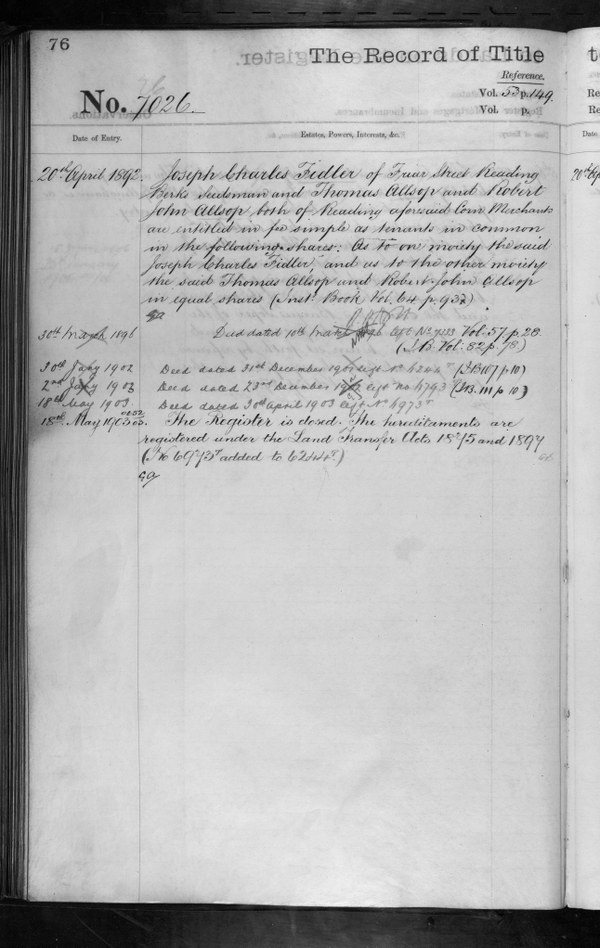 76
The Record of Title
Reference.
Vol. 53 p. 149.
No. 7026.
Vol. p.
Date of Entry.
Estates, Powers, Interests, &c.
20th April 1892. Joseph Charles Fidler of Friar Street Reading
Berks Seedsman and Thomas Allsop and Robert
John Allsop both of Reading aforesaid Corn Merchants
are entitled in fee simple as tenants in common
in the following shares: As to one moiety the said
Joseph Charles Fidler, and as to the other moiety
the said Thomas Allsop and Robert John Allsop
in equal shares (Inst. Book Vol. 64 p. 932)
30th March 1896 Deed dated 10th Vol. 57 p. 28.
(I.B. Vol: 82 p. )
30th Jany 1902 Deed dated 31st December (I.B 107 p 10)
2nd Jany 1903 Deed dated 23rd December no 6793 (I.B. 111 p 10)
18th May 1903 Deed dated 30th April 1903 6973
18th May 1903 The Register is closed. The hereditaments are
registered under the Land Transfer Acts 1875 and 1897
( 6973 added to )
to
Re
Re
Date